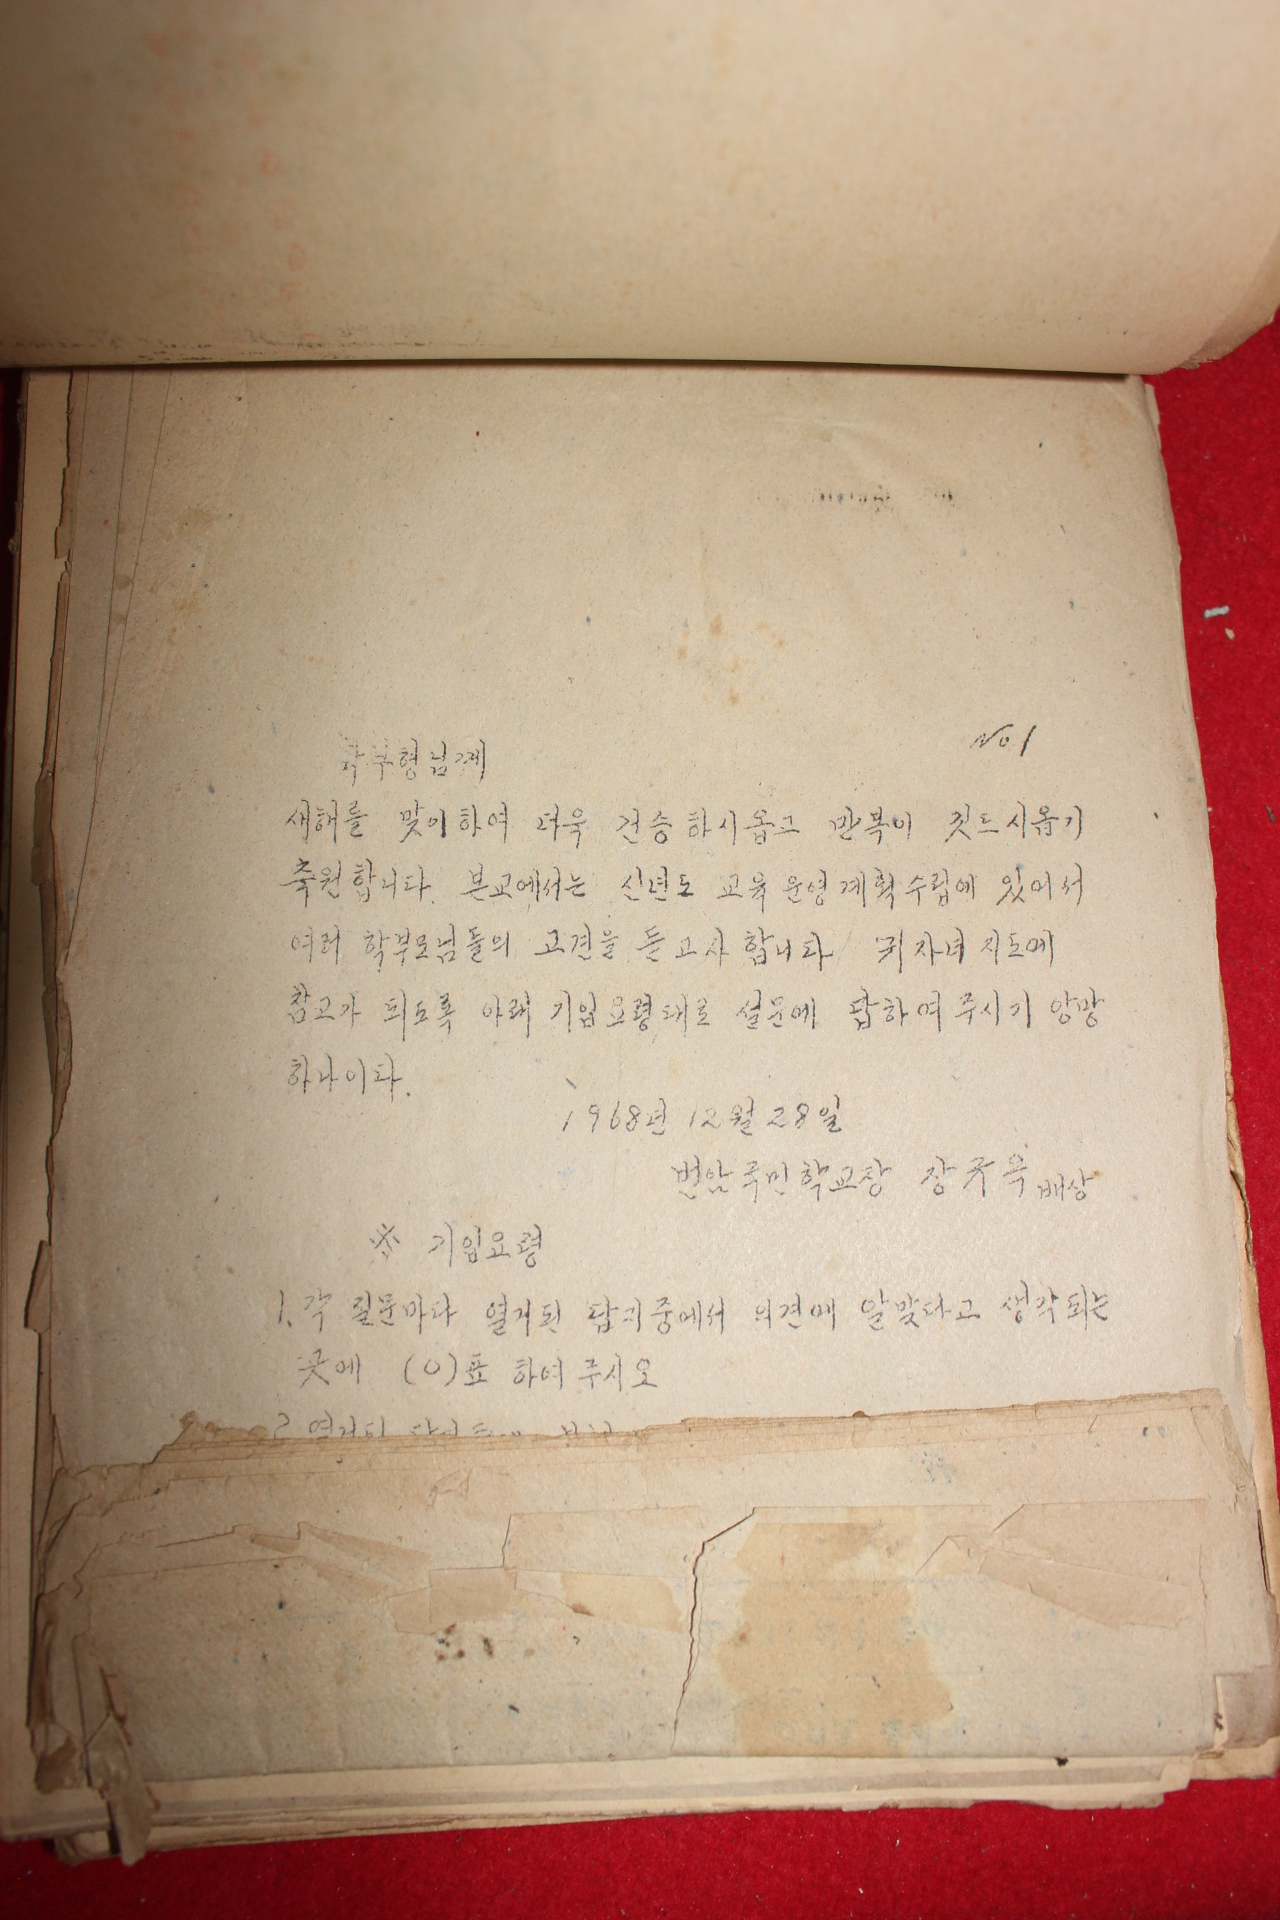 No 1
학부형님께
새해를 맞이하여 더욱 건승하시옵고 만복이 깃드시옵기
축원합니다. 본교에서는 신년도 교육운영계획수립에 있어서
여러 학부모님들의 고견을 듣고자 합니다 귀자녀 지도에
참고가 되도록 아래 기입요령대로 설문에 답하여 주시기 앙망
하나이다.
1968년 12월 28일
번암국민학교장 장 배상
※ 기입요령
1. 각 질문마다 열거된 답지중에서 의견에 알맞다고 생각되는
곳에 (○)표 하여 주시오
2. 열거된